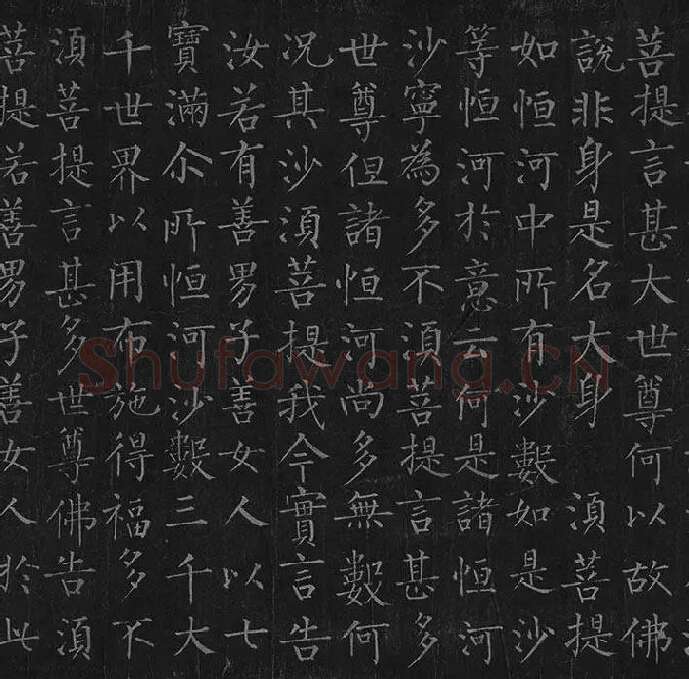 菩提言甚大世尊何以故佛
說非身是名大身 須菩提
如恒河中所有沙數如是沙
等恒河於意云何是諸恒河
沙寧為多不須菩提言甚多
世尊但諸恒河尚多無數何
况其沙須菩提我今實言告
汝若有善男子善女人以七
寶滿尒所恒河沙數三千大
千世界以用布施得福多不
須菩提言甚多世尊佛告須
菩提若善男子善女人於此
Shufawang.CN